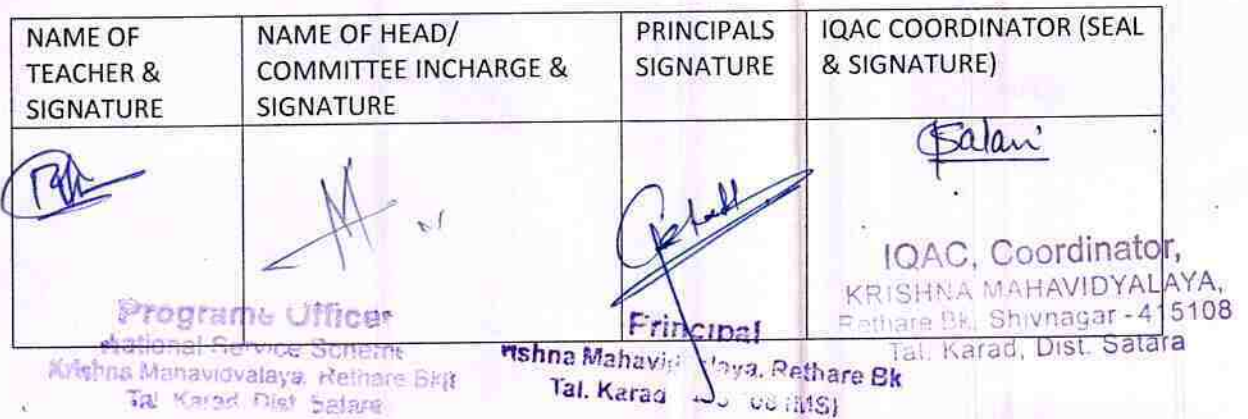 NAME OF
TEACHER &
SIGNATURE
NAME OF HEAD/
COMMITTEE INCHARGE &
SIGNATURE
PRINCIPALS
SIGNATURE
IQAC COORDINATOR (SEAL
& SIGNATURE)
Salavi
Programe Officer
National Service Scheme
Krishna Mahavidyalaya, Rethare Bk
Tal. Karad, Dist. Satara
Principal
rishna Mahavid laya, Rethare Bk
Tal. Karad
IQAC, Coordinator,
KRISHNA MAHAVIDYALAYA,
Rethare Bk, Shivnagar - 415108
Tal. Karad, Dist. Satara